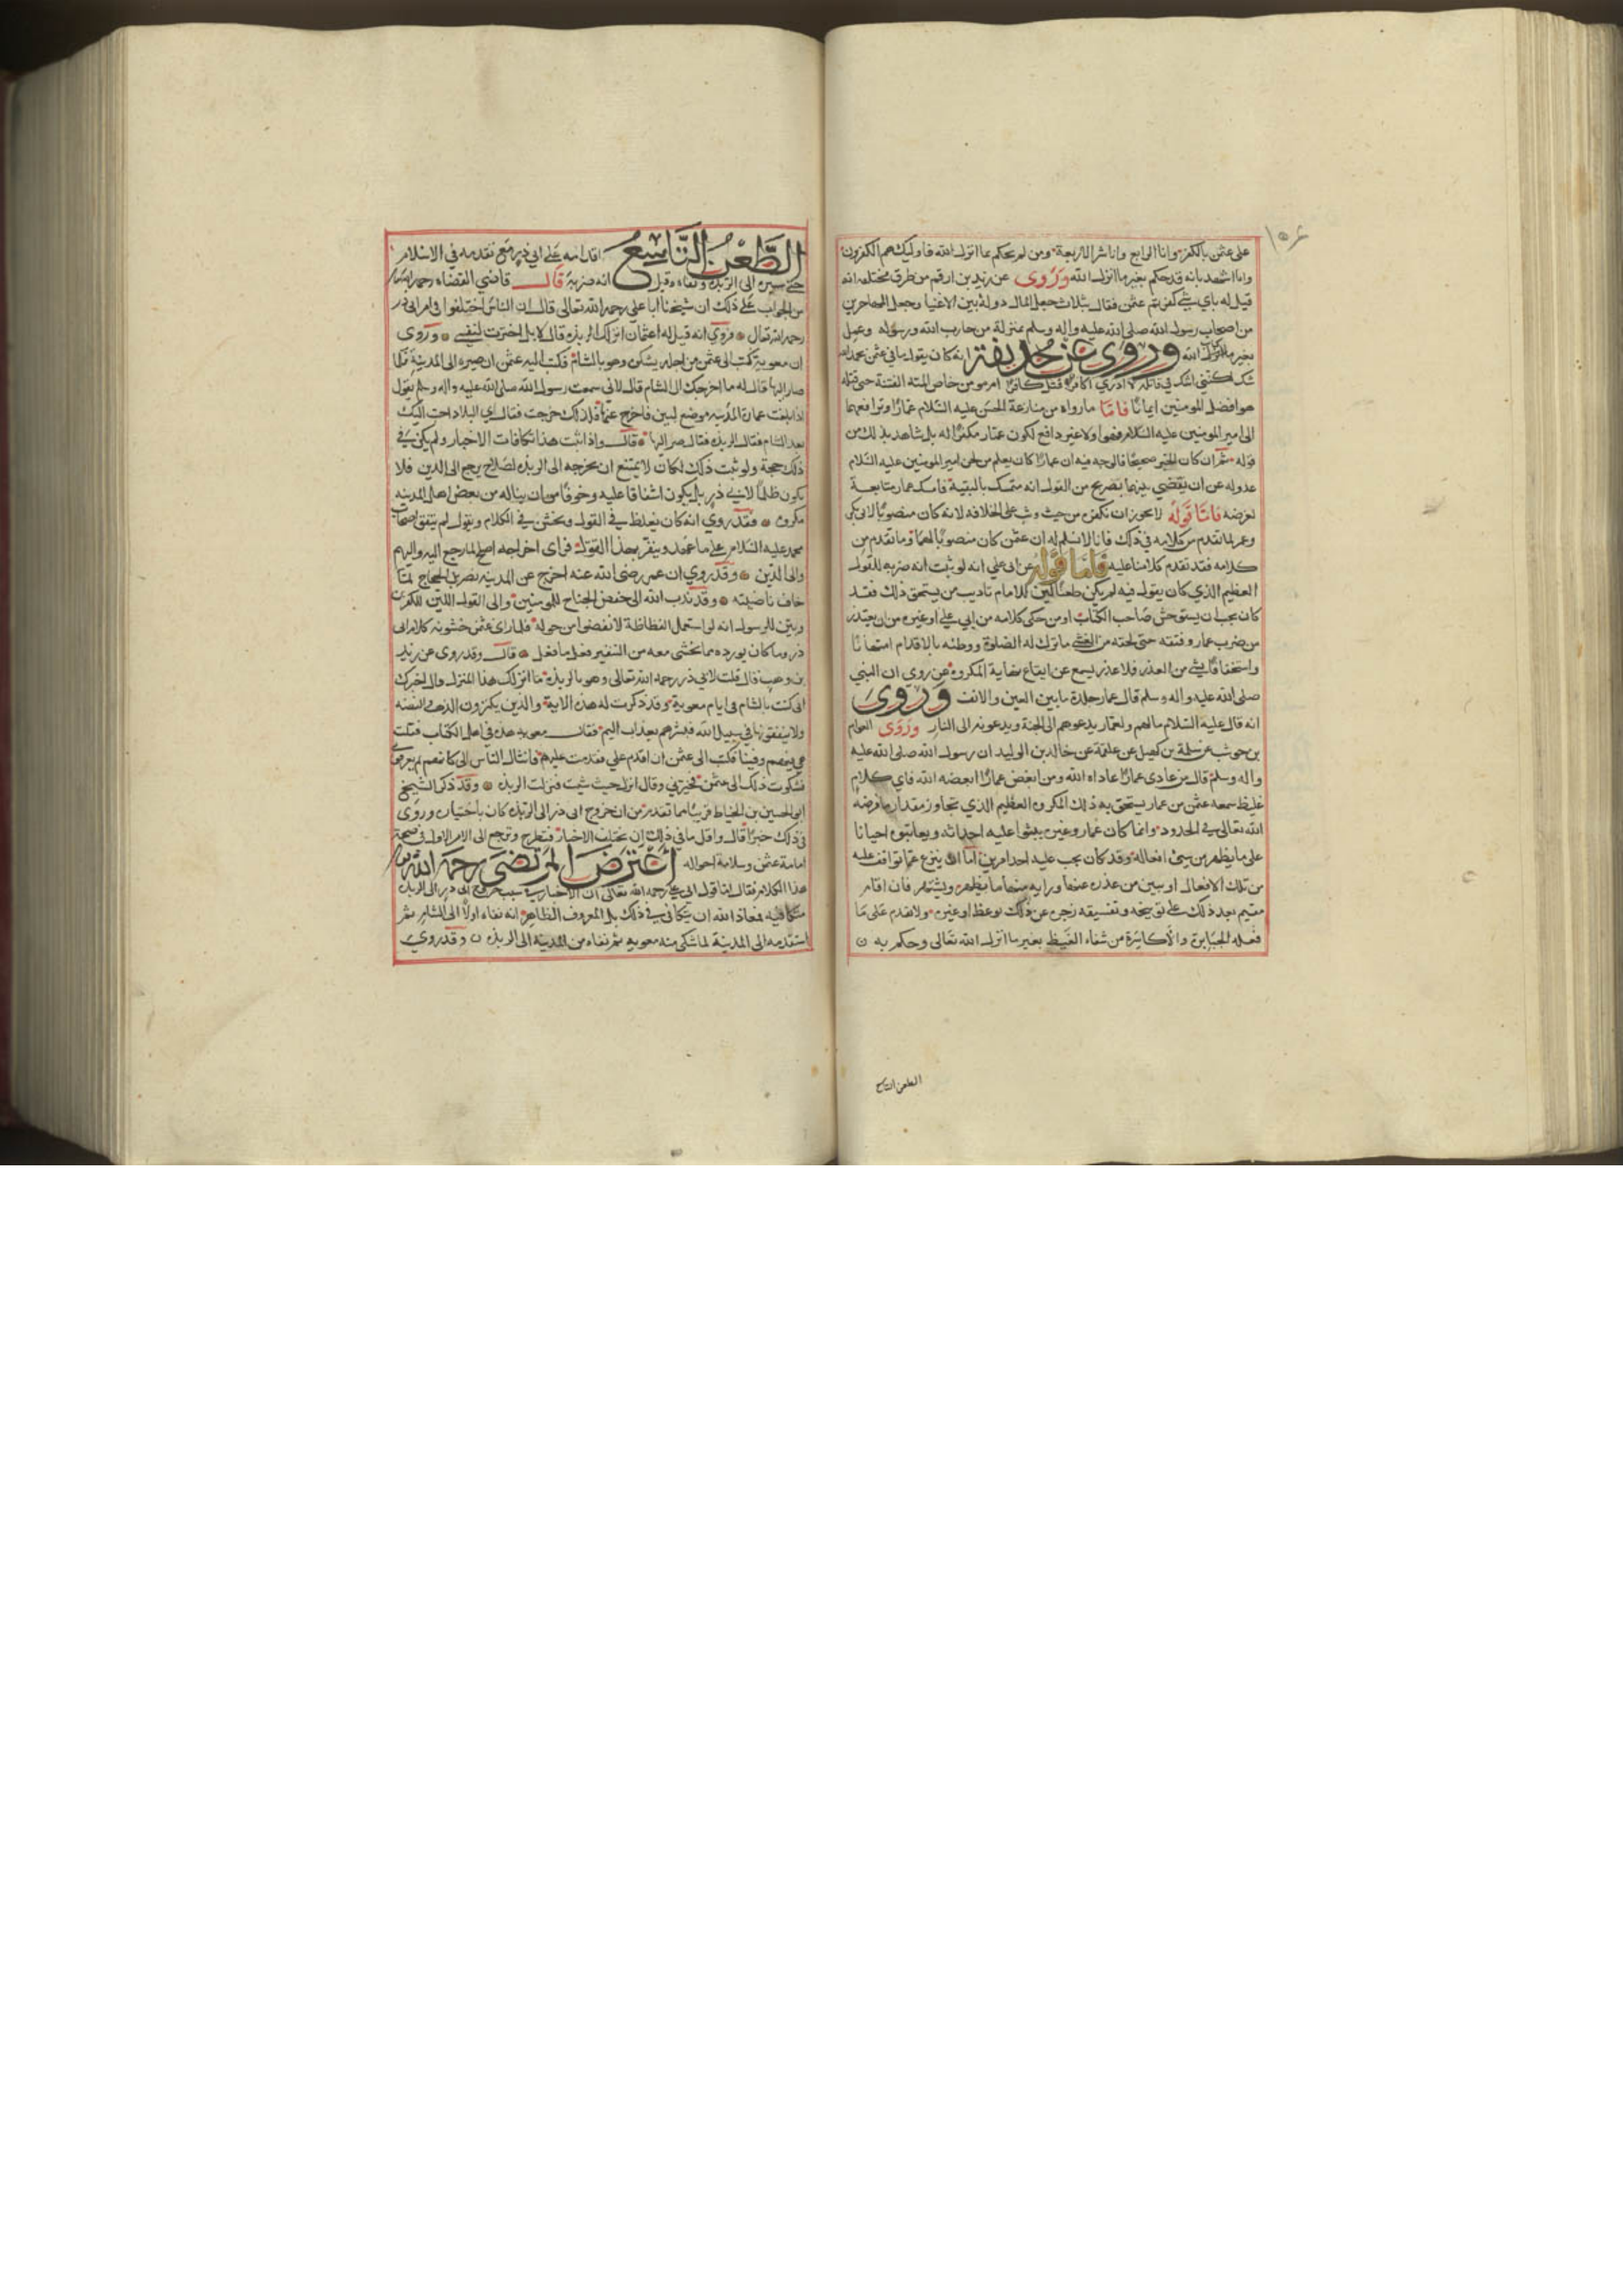 ١٥٤
على عثمن بالكفر وانا الرابع وانا شر الاربعة ومن لم يحكم بما انزل الله فاوليك هم الكفرون
وانا اشهد بانه قد حكم بغير ما انزل الله وروى عن زيد بن ارقم من طرق مختلفه انه
قيل له باي شي كفرتم عثمن فقال بثلاث جعل المال دولة بين الاغنيا وجعل المهاجرين
من اصحاب رسول الله صلى الله عليه واله وسلم بمنزلة من حارب الله ورسوله وعمل
بغير كتاب الله وروى عن حذيفة انه كان يقول ما في عثمن بحمد الله
شك لكنني اشك في قاتله لا ادري اكافر قتل كافرا ام مومن خاض اليه الفتنة حتى قتله
هو افضل المومنين ايمانا فاما ما رواه من منازعة الحسن عليه السلام عمارا وترافعهما
الى امير المومنين عليه السلام فهو اولا غير دافع لكون عمار مكفرا له بل شاهد بذلك من
قوله ثم ان كان الخبر صحيحا فالوجه فيه ان عمارا كان يعلم من لحن امير المومنين عليه السلام
عدوله عن ان يقضي بينهما بصريح من القول انه متمسك بالتقية فامسك عمار متابعة
لغرضه فاما قوله لا يجوز ان نكفره من حيث وثب على الخلافه لانه كان منصوبا لابي بكر
وعمر لما تقدم من كلامه في ذلك فانا لا نسلم له ان عثمن كان منصوبا لهما وما تقدم من
كلامه فقد تقدم كلامنا عليه فاما قوله عن ابي علي انه لو ثبت انه ضربه للقول
العظيم الذي كان يقول فيه لم يكن طعنا لان للامام تاديب من يستحق ذلك فقد
كان يجب ان يستوحش صاحب الكتاب او من حكى كلامه من ابي علي او غيره من ان يعتذر
من ضرب عمار وفتقه حتى لحقه من الغشي ما ترك له الصلوة ووطئه بالاقدام امتهانا
واستخفافا بشي من العذر فلا عذر يسمع عن ايقاع نهاية المكروه عن روي ان النبي
صلى الله عليه واله وسلم قال عمار جلدة ما بين العين والانف وروى
انه قال عليه السلام ما لهم ولعمار يدعوهم الى الجنة ويدعونه الى النار وروى العوام
بن حوشب عن سلمة بن كهيل عن علقمة عن خالد بن الوليد ان رسول الله صلى الله عليه
واله وسلم قال من عادى عمارا عاداه الله ومن ابغض عمارا ابغضه الله فاي كلام
غليظ سمعه عثمن من عمار يستحق به ذلك المكروه العظيم الذي تجاوز مقدار ما فرضه
الله تعالى في الحدود وانما كان عمار وغيره يبثوا عليه احداثه ويعاتبوه احيانا
على ما يظهر من سيئ افعاله وقد كان يجب عليه احد امرين اما ان ينزع عما تواقف عليه
من تلك الافعال او يبين من عذره عنها وبرايه منها ما يظهر ويشتهر فان اقام
مقيم بعد ذلك على توبيخه وتفسيقه زجره عن ذلك بوعظ او غيره ولا يقدم على ما
فعله الجبابرة والاكاسرة من شفاء الغيظ بغير ما انزل الله تعالى وحكم به ن
الطعن التاسع
الطعن التاسع اقدامه على ابي ذر مع تقدمه في الاسلام
حتى سيره الى الربذة ونفاه وقيل انه ضربه قال قاضي القضاه رحمه الله
من الجواب على ذلك ان شيخنا ابا علي رحمه الله تعالى قال ان الناس اختلفوا في امر ابي ذر
رحمه الله تعالى وروي انه قيل له اعثمان انزلك الربذه قال لا بل اخترت لنفسي وروى
ان معوية كتب الى عثمن من اجله يشكوه وهو بالشام فكتب اليه عثمن ان صيره الى المدينة فلما
صار اليها قال له ما اخرجك الى الشام قال لاني سمعت رسول الله صلى الله عليه واله وسلم يقول
اذا بلغت عمارة المدينه موضع لبن فاخرج عنها فلذلك خرجت فقال اي البلاد احب اليك
بعد الشام فقال الربذه فقال صر اليها قال واذا ثبت هذا تكافات الاخبار ولم يكن في
ذلك حجة ولو ثبت ذلك لكان لا يمتنع ان يخرجه الى الربذه لصلاح يرجع الى الدين فلا
يكون ظلما لابي ذر بل يكون اشفاقا عليه وخوفا من ان يناله من بعض اهل المدينه
مكروه فقد روي انه كان يغلظ في القول ويخشن في الكلام ويقول لم يبق اصحاب
محمد عليه السلام على ما عهد وينفر بهذا القول فراى اخراجه اصلح لما يرجع اليه واليهم
والى الدين وقد روي ان عمر رضي الله عنه اخرج عن المدينه نصر بن الحجاج لما
خاف ناحيته وقد ندب الله الى خفض الجناح للمومنين والى القول اللين للكفرين
وبين للرسول انه لو استعمل الفظاظة لانفضوا من حوله فلما راى عثمن خشونه كلام ابي
ذر وما كان يورده مما يخشى معه من التنفير فعل ما فعل قال وقد روى عن زيد
بن وهب قال قلت لابي ذر رحمه الله تعالى وهو بالربذه ما انزلك هذا المنزل قال اخبرك
اني كنت بالشام في ايام معوية وقد ذكرت له هذه الاية والذين يكنزون الذهب والفضه
ولا ينفقونها في سبيل الله فبشرهم بعذاب اليم فقال معويه هذه في اهل الكتاب فقلت
هي فيهم وفينا فكتب الى عثمن ان اقدم علي فقدمت عليه فانثال الناس الي كانهم لم يعرفوني
فشكوت ذلك الى عثمن فخيرني وقال انزل حيث شيت فنزلت الربذه وقد ذكر الشيخ
ابو الحسين بن الخياط قريبا مما تقدم من ان خروج ابي ذر الى الربذه كان باختياره وروى
في ذلك خبرا قال واقل ما في ذلك ان تختلف الاخبار فتطرح ونرجع الى الامر الاول في صحة
امامة عثمن وسلامة احواله اعترض المرتضى رحمه الله
هذا الكلام فقال اما قول ابي علي رحمه الله تعالى ان الاخبار في سبب خروج ابي ذر الى الربذه
متكافيه فمعاذ الله ان يتكافى في ذلك بل المعروف الظاهر انه نفاه اولا الى الشام ثم
استقدمه الى المدينة لما شكى منه معويه ثم نفاه من المدينة الى الربذه ن وقد روي